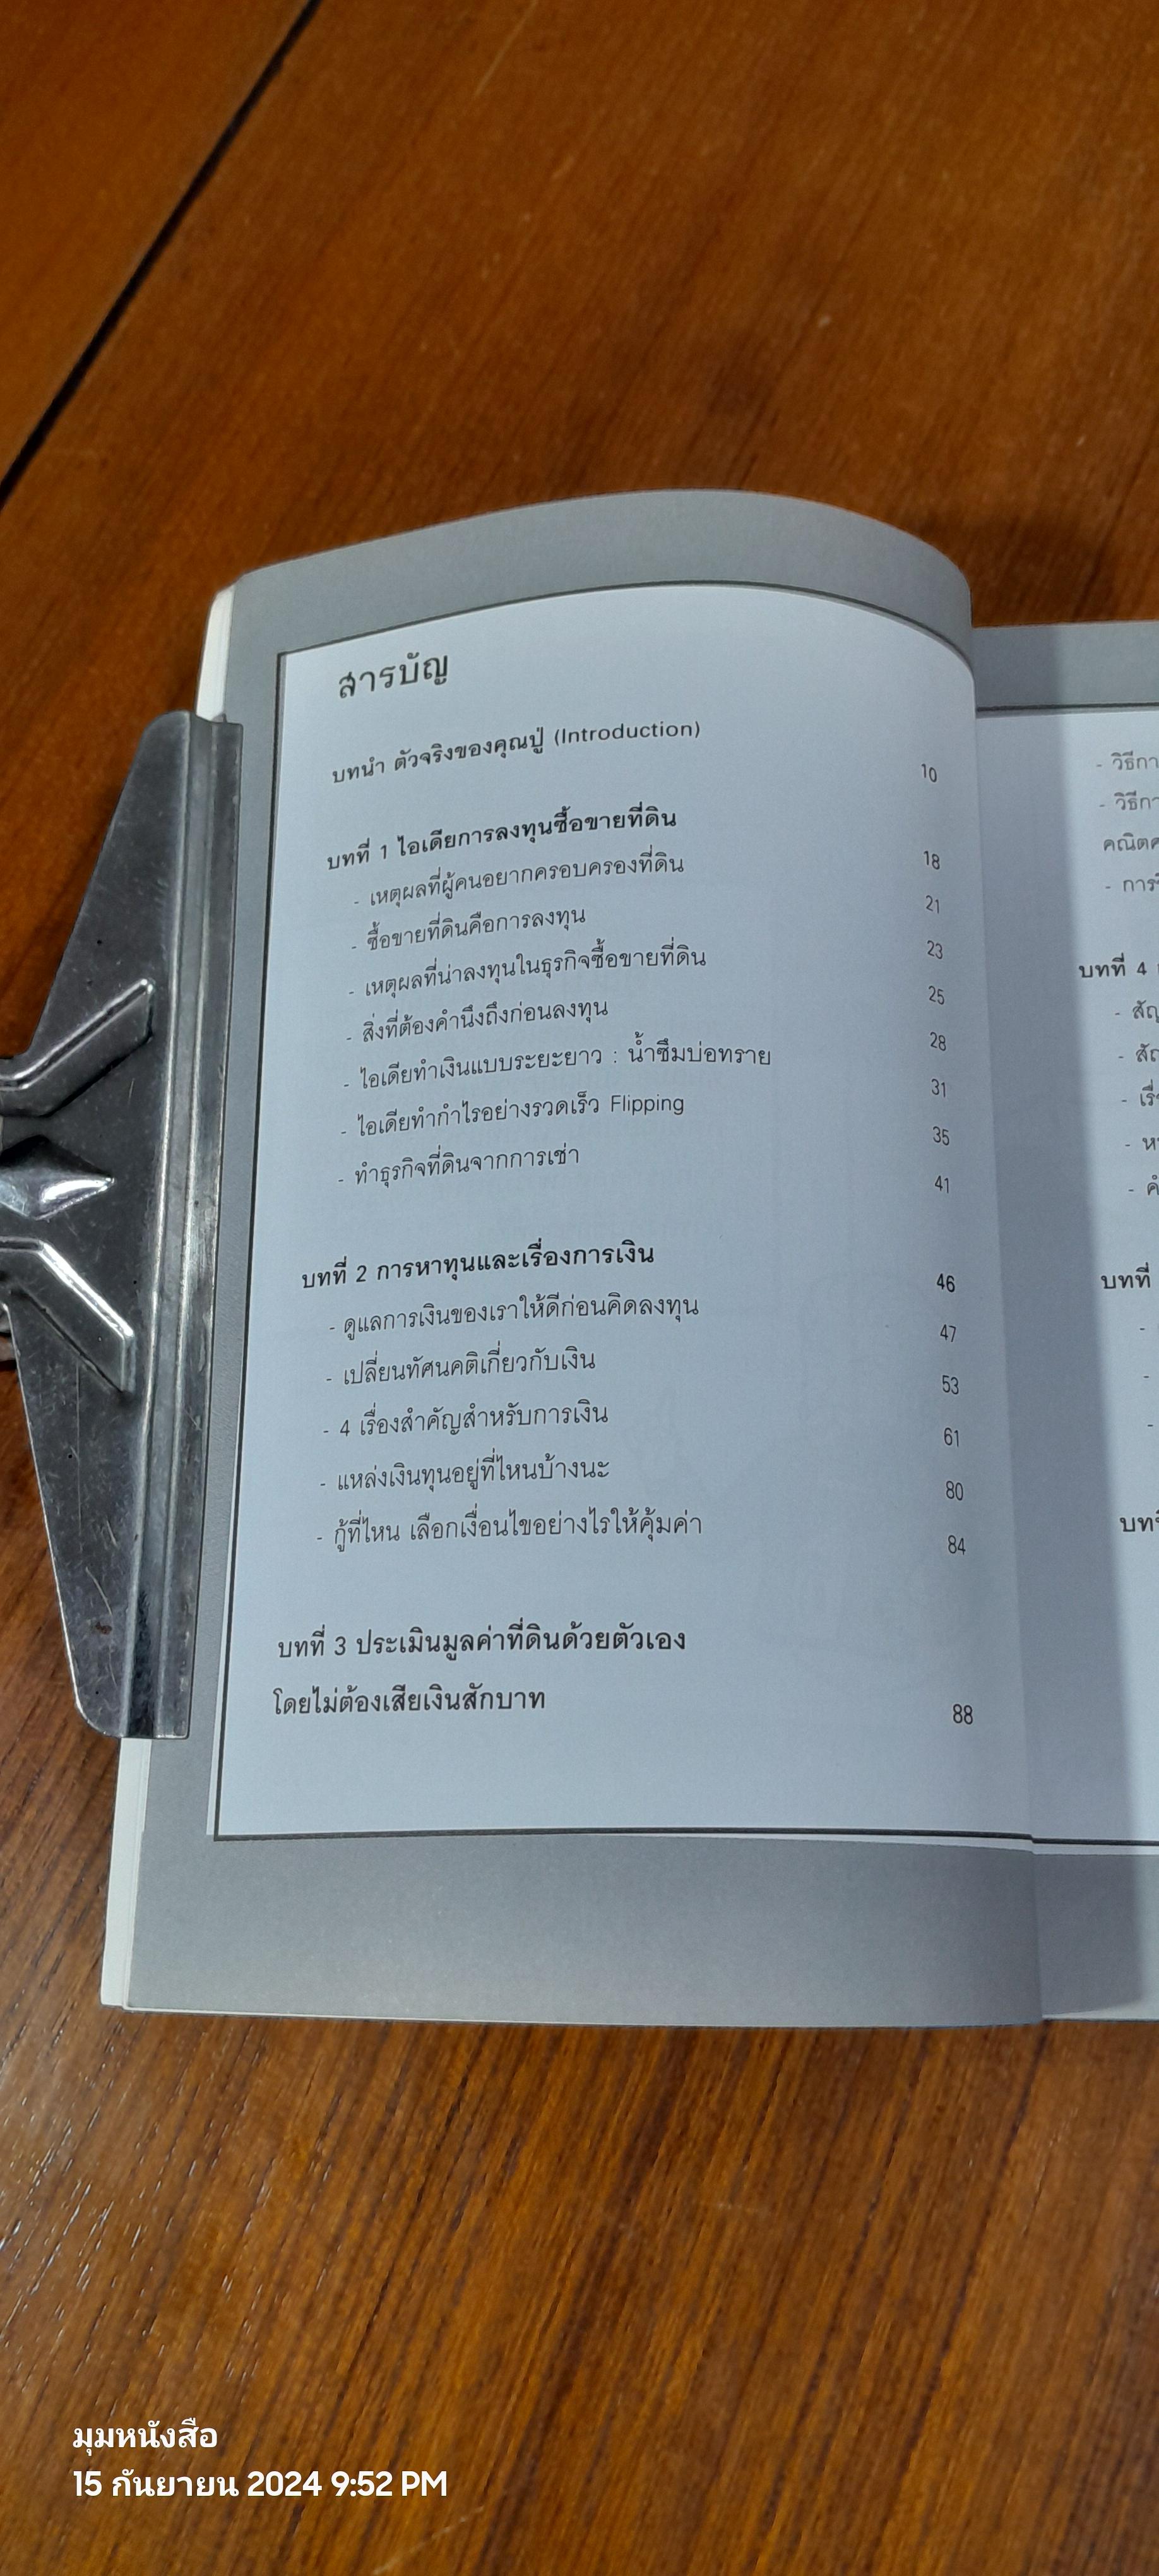 สารบัญ
บทนำ ตัวจริงของคุณปู่ (Introduction) 10
บทที่ 1 ไอเดียการลงทุนซื้อขายที่ดิน 18
- เหตุผลที่ผู้คนอยากครอบครองที่ดิน 21
- ซื้อขายที่ดินคือการลงทุน 23
- เหตุผลที่น่าลงทุนในธุรกิจซื้อขายที่ดิน 25
- สิ่งที่ต้องคำนึงถึงก่อนลงทุน 28
- ไอเดียทำเงินแบบระยะยาว : น้ำซึมบ่อทราย 31
- ไอเดียทำกำไรอย่างรวดเร็ว Flipping 35
- ทำธุรกิจที่ดินจากการเช่า 41
บทที่ 2 การหาทุนและเรื่องการเงิน 46
- ดูแลการเงินของเราให้ดีก่อนคิดลงทุน 47
- เปลี่ยนทัศนคติเกี่ยวกับเงิน 53
- 4 เรื่องสำคัญสำหรับการเงิน 61
- แหล่งเงินทุนอยู่ที่ไหนบ้างนะ 80
- กู้ที่ไหน เลือกเงื่อนไขอย่างไรให้คุ้มค่า 84
บทที่ 3 ประเมินมูลค่าที่ดินด้วยตัวเอง
โดยไม่ต้องเสียเงินสักบาท 88
บทที่ 4
บทที่
มุมหนังสือ
15 กันยายน 2024 9:52 PM